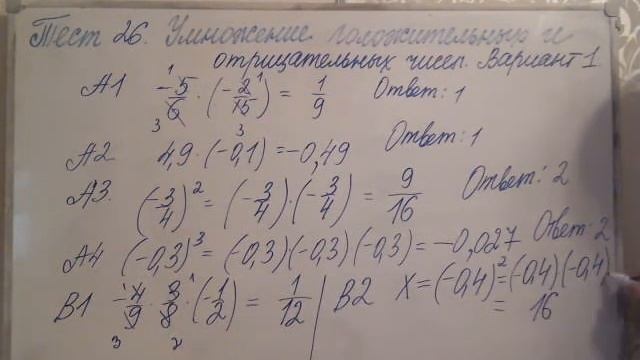 Тест 26. Умножение положительных и
отрицательных чисел. Вариант 1.
А1 -5/6 · (-2/15) = 1/9 Ответ: 1
А2 4,9 · (-0,1) = -0,49 Ответ: 1
А3. (-3/4)² = (-3/4)·(-3/4) = 9/16 Ответ: 2
А4 (-0,3)³ = (-0,3)(-0,3)(-0,3) = -0,027 Ответ: 2
В1 -4/9 · 3/8 · (-1/2) = 1/12
В2 X = (-0,4)² = (-0,4)(-0,4)
= 16